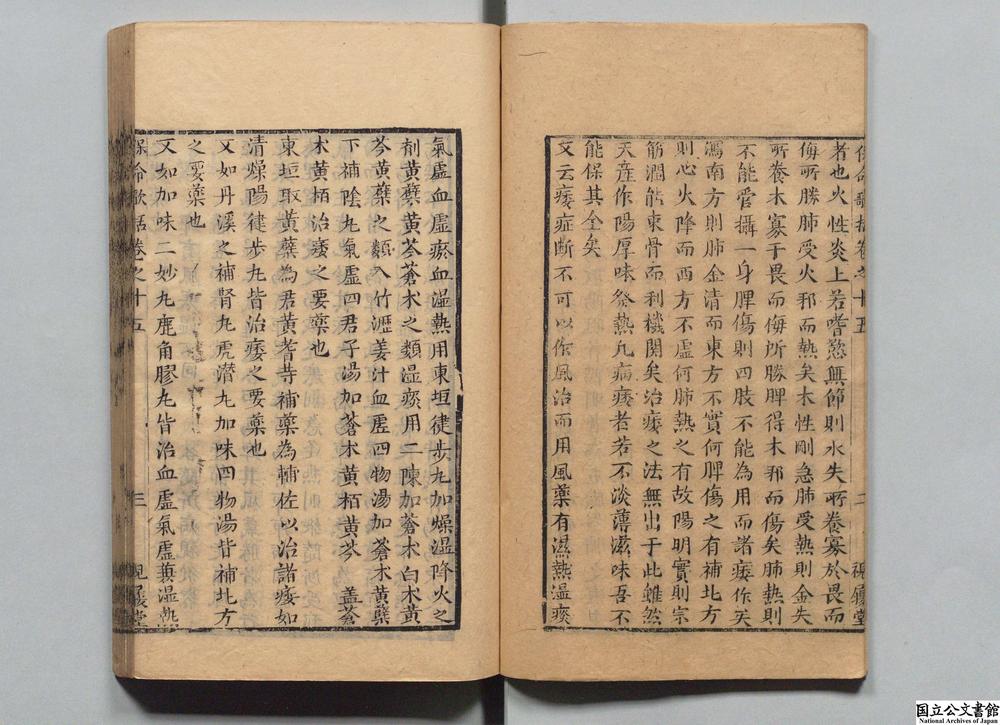 保命歌括卷之十五 二 視履堂
者也火性炎上若嗜慾無節則水失所養寡於畏而
侮所勝肺受火邪而熱矣木性剛急肺受熱則金失
所養木寡于畏而侮所勝脾得木邪而傷矣肺熱則
不能管攝一身脾傷則四肢不能為用而諸痿作矣
瀉南方則肺金清而東方不實何脾傷之有補北方
則心火降而西方不虛何肺熱之有故陽明實則宗
筋潤能束骨而利機關矣治痿之法無出于此雖然
天產作陽厚味發熱凡病痿者若不淡薄滋味吾不
能保其全矣
又云痿症斷不可以作風治而用風藥有濕熱濕痰
氣虛血虛瘀血濕熱用東垣健步丸加燥濕降火之
劑黃蘗黃芩蒼木之類濕痰用二陳加蒼木白木黃
芩黃蘗之類入竹瀝姜汁血虛四物湯加蒼木黃蘗
下補陰丸氣虛四君子湯加蒼木黃栢黃芩 盖蒼
木黃栢治痿之要藥也
東垣取黃蘗為君黃耆等補藥為輔佐以治諸痿如
清燥陽健步丸皆治痿之要藥也
又如丹溪之補腎丸虎潛丸加味四物湯皆補北方
之要藥也
又如加味二妙丸鹿角膠丸皆治血虛氣虛兼濕熱
保命歌括卷之十五 三 視履堂
国立公文書館
National Archives of Japan